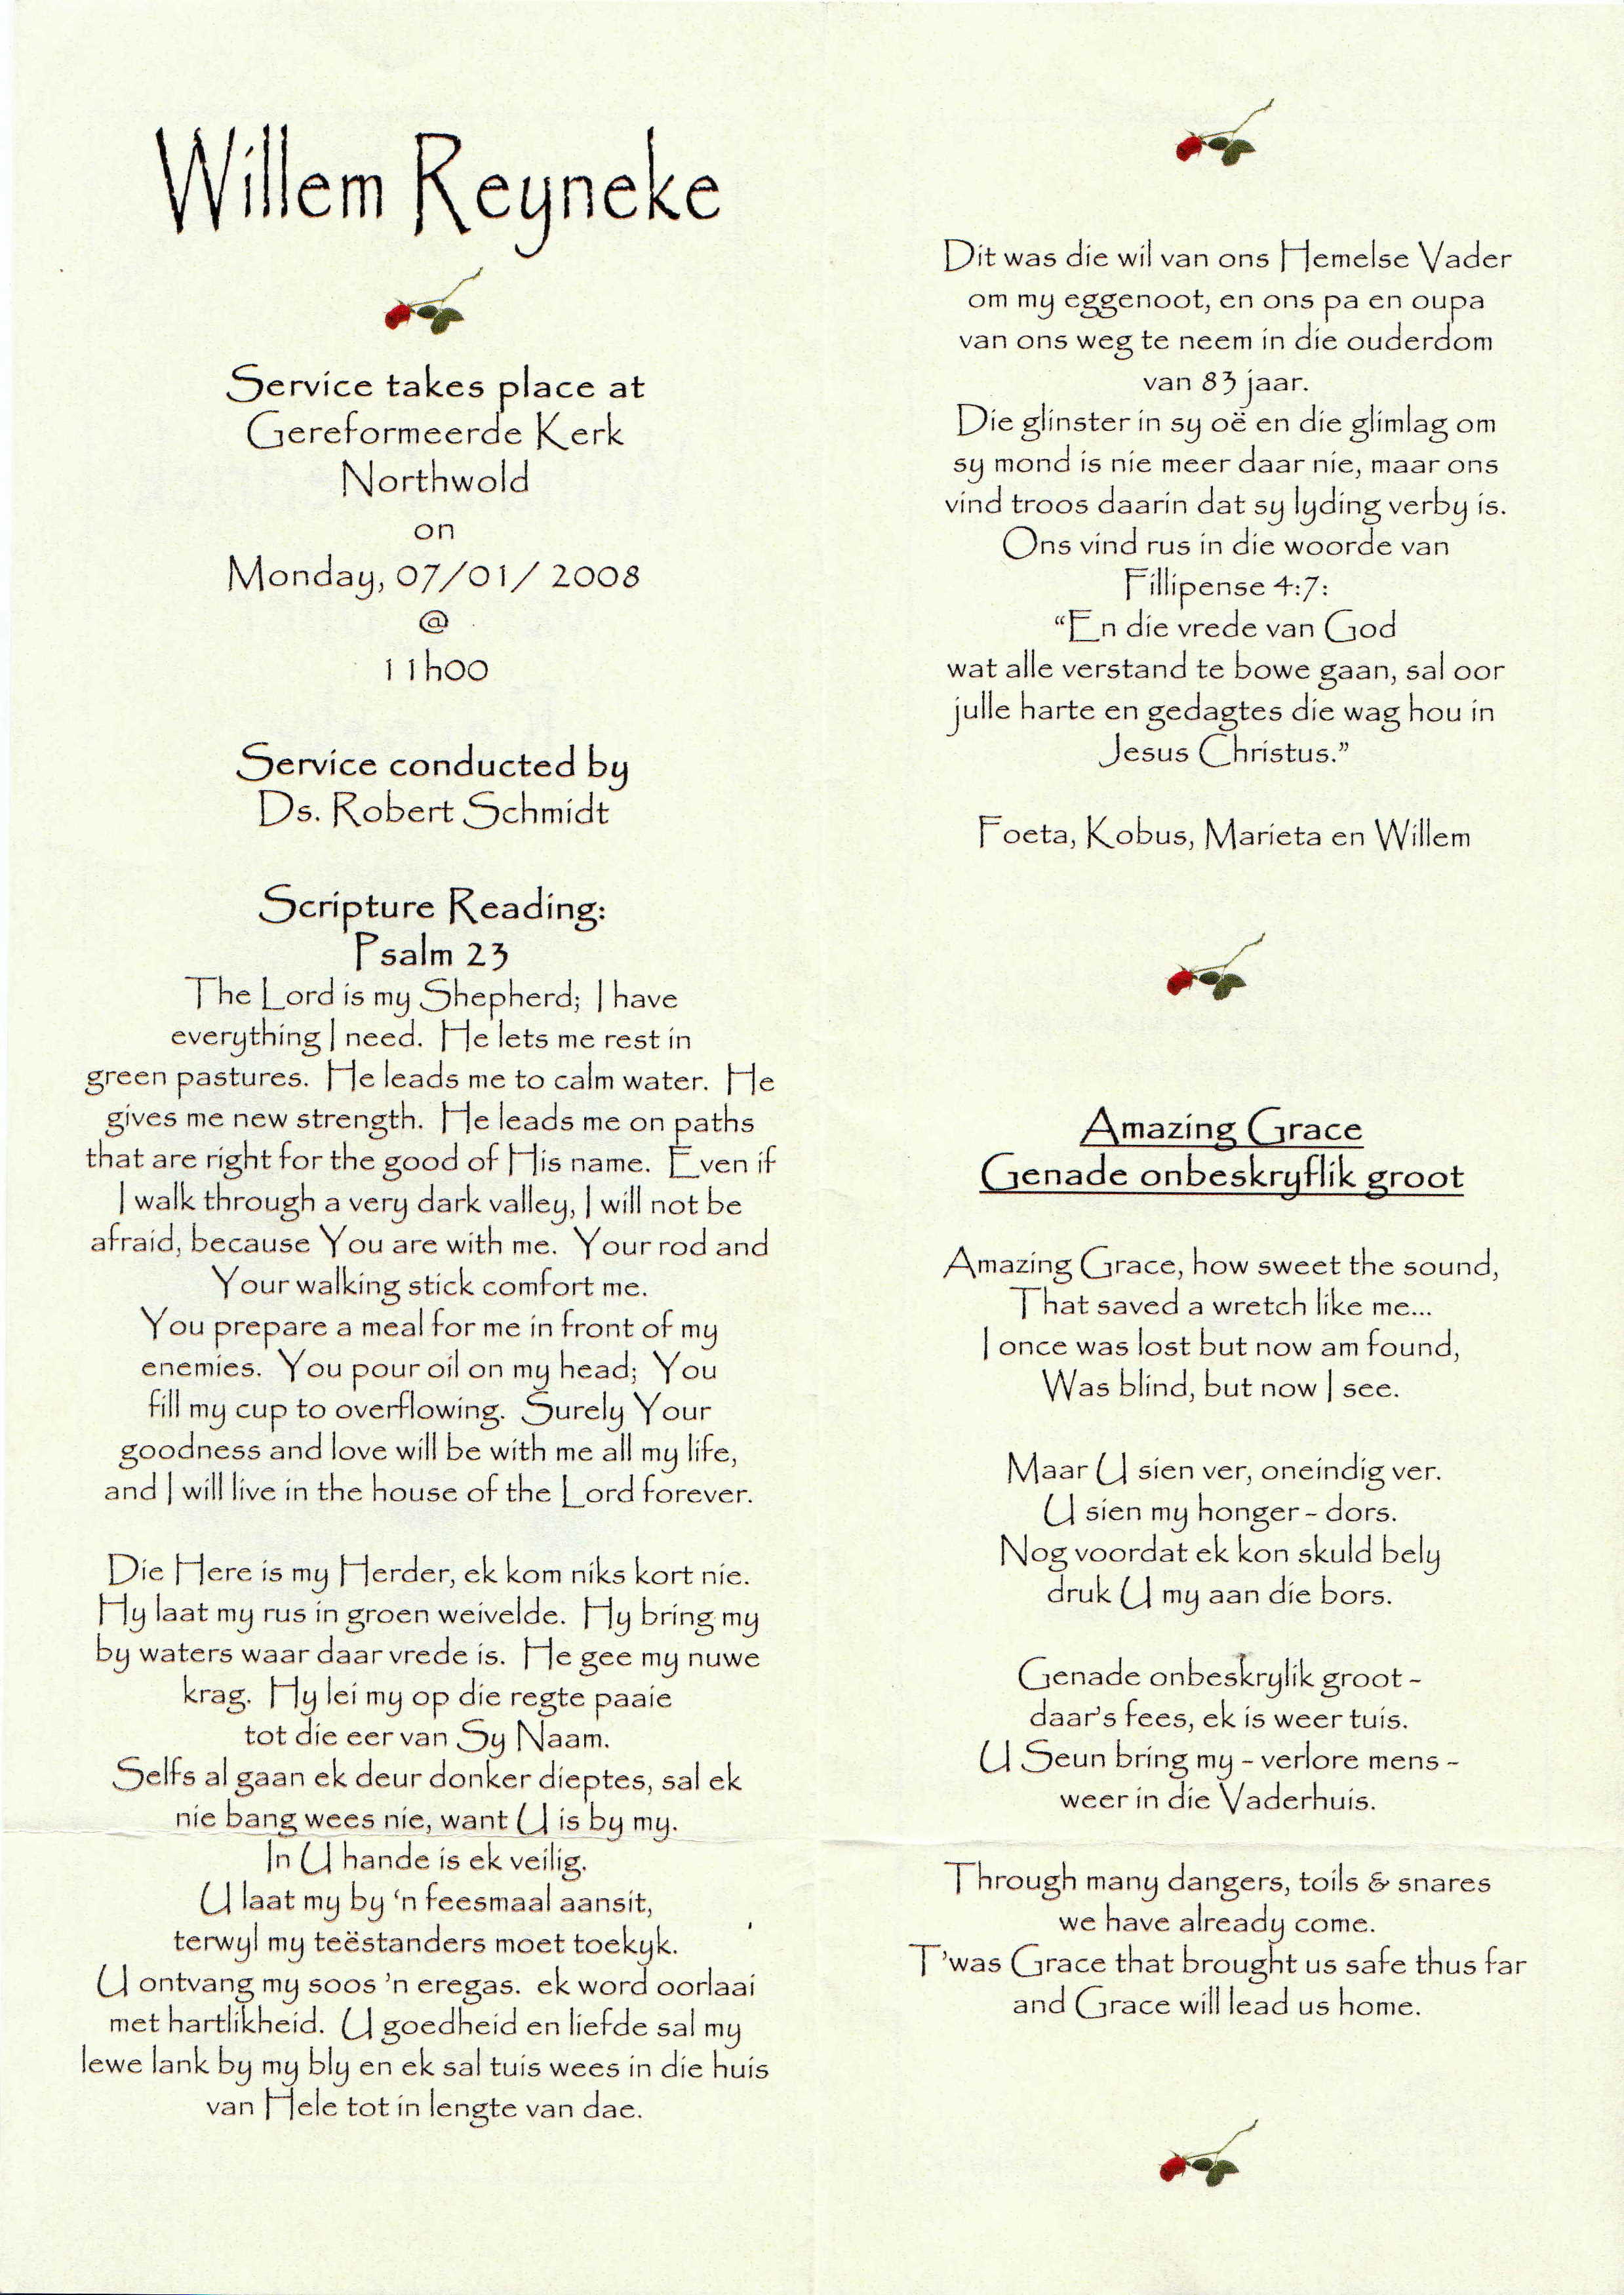 Willem Reyneke
Service takes place at
Gereformeerde Kerk
Northwold
on
Monday, 07/01/ 2008
@
11h00
Service conducted by
Ds. Robert Schmidt
Scripture Reading:
Psalm 23
The Lord is my Shepherd; I have
everything I need. He lets me rest in
green pastures. He leads me to calm water. He
gives me new strength. He leads me on paths
that are right for the good of His name. Even if
I walk through a very dark valley, I will not be
afraid, because You are with me. Your rod and
Your walking stick comfort me.
You prepare a meal for me in front of my
enemies. You pour oil on my head; You
fill my cup to overflowing. Surely Your
goodness and love will be with me all my life,
and I will live in the house of the Lord forever.
Die Here is my Herder, ek kom niks kort nie.
Hy laat my rus in groen weivelde. Hy bring my
by waters waar daar vrede is. He gee my nuwe
krag. Hy lei my op die regte paaie
tot die eer van Sy Naam.
Selfs al gaan ek deur donker dieptes, sal ek
nie bang wees nie, want U is by my.
In U hande is ek veilig.
U laat my by ‘n feesmaal aansit,
terwyl my teëstanders moet toekyk.
U ontvang my soos ’n eregas. ek word oorlaai
met hartlikheid. U goedheid en liefde sal my
lewe lank by my bly en ek sal tuis wees in die huis
van Hele tot in lengte van dae.
Dit was die wil van ons Hemelse Vader
om my eggenoot, en ons pa en oupa
van ons weg te neem in die ouderdom
van 83 jaar.
Die glinster in sy oë en die glimlag om
sy mond is nie meer daar nie, maar ons
vind troos daarin dat sy lyding verby is.
Ons vind rus in die woorde van
Fillipense 4:7:
“En die vrede van God
wat alle verstand te bowe gaan, sal oor
julle harte en gedagtes die wag hou in
Jesus Christus.”
Foeta, Kobus, Marieta en Willem
Amazing Grace
Genade onbeskryflik groot
Amazing Grace, how sweet the sound,
That saved a wretch like me...
I once was lost but now am found,
Was blind, but now I see.
Maar U sien ver, oneindig ver.
U sien my honger - dors.
Nog voordat ek kon skuld bely
druk U my aan die bors.
Genade onbeskrylik groot -
daar’s fees, ek is weer tuis.
U Seun bring my - verlore mens -
weer in die Vaderhuis.
Through many dangers, toils & snares
we have already come.
T’was Grace that brought us safe thus far
and Grace will lead us home.